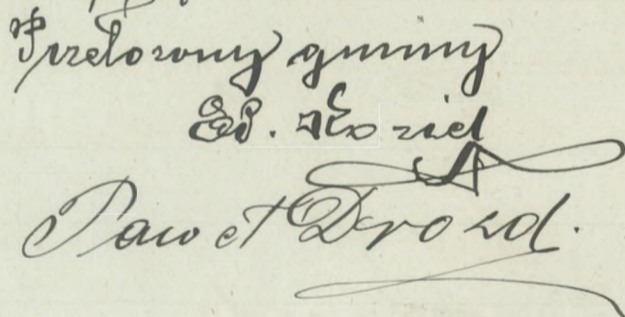 Przełożony gminy
Ed. Kozieł
Paweł Drozd.